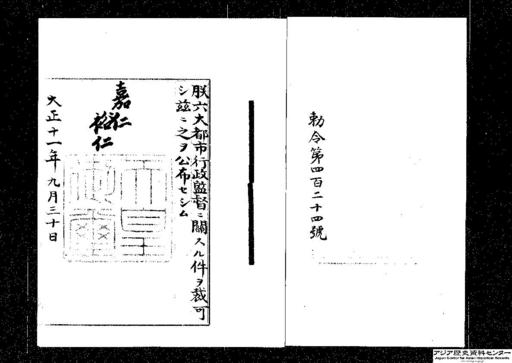 勅令第四百二十四號
朕六大都市行政監督ニ關スル件ヲ裁可
シ玆ニ之ヲ公布セシム
嘉仁
裕仁
天皇御璽
大正十一年九月三十日
アジア歴史資料センター
Japan Center for Asian Historical Records